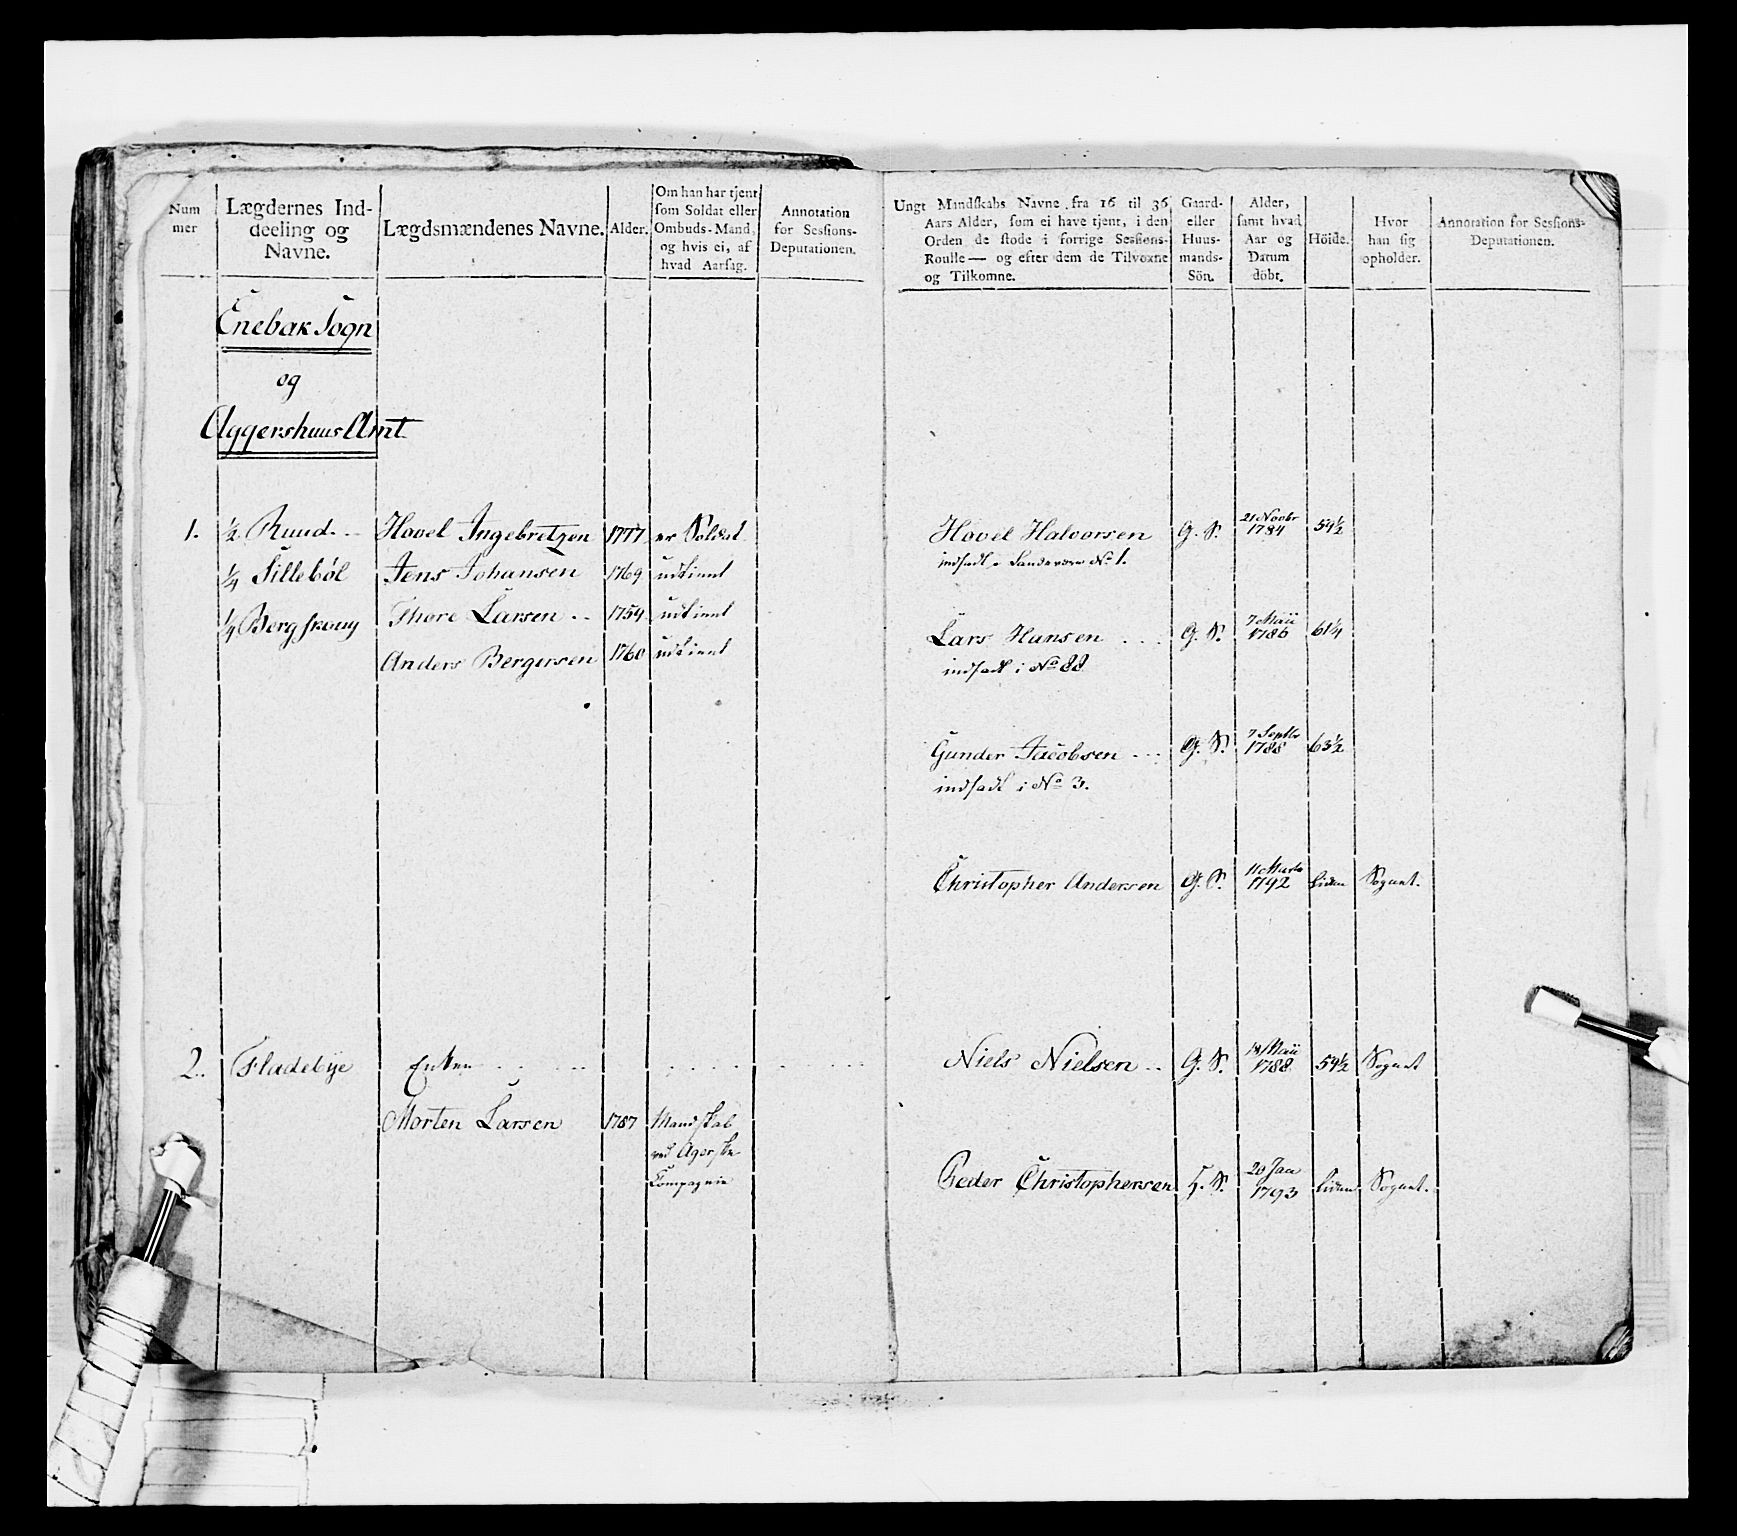 Num
mer
Lægdernes Ind-
deeling og
Navne.
Lægdsmændenes Navne.
Alder.
Om han har tjent
som Soldat eller
Ombuds-Mand,
og hvis ei, af
hvad Aarsag.
Annotation
for Sessions-
Deputationen.
Enebak Sogn
og
Aggershuus Amt.
1. ½ Ruud. Hovel Ingebretzen 1777 er Soldat
¼ Sillebøl Jens Johansen 1769 udtient
¼ Berg Thore Larsen 1754 udtient
Anders Bergersen 1760 udtient
2. Fladebÿe Enken
Morten Larsen 1787 Mandskab
ved Agerske
Compagnie
Ungt Mandskabs Navne fra 16 til 36
Aars Alder, som ei have tjent, i den
Orden de stode i forrige Sessions-
Roulle — og efter dem de Tilvoxne
og Tilkomne.
Gaard-
eller
Huus-
mands-
Sön.
Alder,
samt hvad
Aar og
Datum
döbt.
Höide.
Hvor
han sig
opholder.
Annotation for Sessions-
Deputationen.
Hovel Halvorsen G. S. 21 Novbr 1784 59½
indsadt No 1.
Lars Hansen G. S. 7 Maii 1786 61¼
indsadt i No 88
Gunder Jacobsen G. S. 7 Septbr 1788 63½
indsadt i No 3.
Christopher Andersen G. S. 11 Marts 1792 liden Sognet.
Niels Nielsen G. S. 18 Maii 1788 59½ Sognet
Peder Christophersen H. S. 20 Jan 1793 liden Sognet.